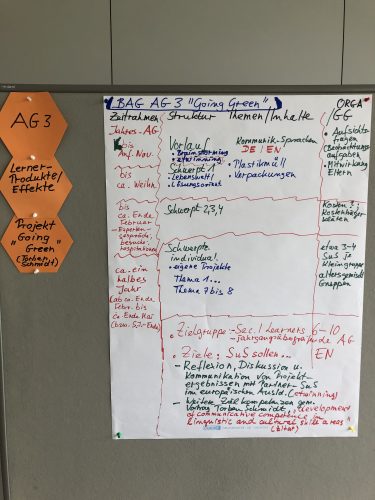 AG 3
Lerner-
Produkte/
Effekte
Projekt
"Going
Green"
(Torben
Schmidt)
BAG AG 3 "Going Green"
Zeitrahmen
Struktur
Themen/Inhalte
ORGA/
GG
Jahres-AG
bis
Anf. Nov.
Vorlauf
• Brainstorming
• eTwinning
Kommunik.-Sprachen
DE | EN
• Aufsichts-
fragen
Aufgaben
• Mitwirkung
Eltern
bis
ca. Weihn.
Schwerpt 1
• Lebenswelt/
• Lösungsorient.
• Plastikmüll
• Verpackungen
bis
ca. Ende
Februar
Experten-
gespräche,
besuche,
Schwerpt 2,3,4
Kosten?!
ca. ein
halbes
Jahr
(ab ca. Ende
Febr. bis
ca. Ende Mai
Schwerpte
individual.
• eigene Projekte
Thema 1...
Thema 7 bis 8
etwa 3-4
SuS je
Kleingruppe
altersgemischt
Gruppen
• Zielgruppe: - Sec. I Learners 6-10
- jahrgangsübergreifende AG
• Ziele: SuS sollen...
EN
- Reflexion, Diskussion u.
Kommunikation von Projekt-
ergebnissen mit Partner-SuS
im europäischen Ausld. (etwinning)
- weitere Zielkompetenzen gem.
Vortrag Torben Schmidt, "development
of communicative competence in
linguistic and cultural skill areas"
(Zitat)